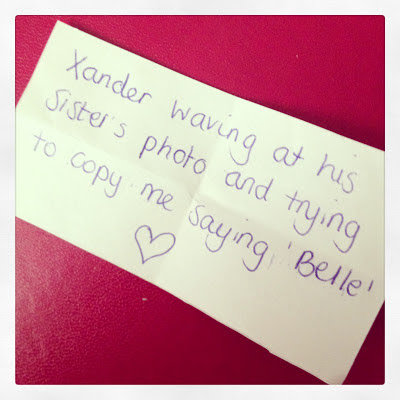 Xander waving at his
Sister's photo and trying
to copy me saying 'Belle'